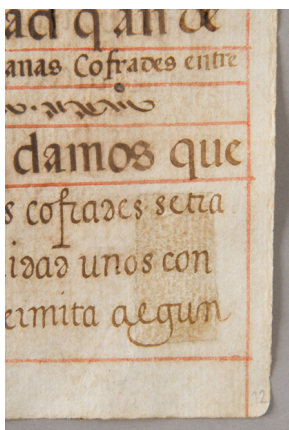 ad q an de
anas Cofrades entre
damos que
s cofrades setra
idad unos con
ermita aegun
12